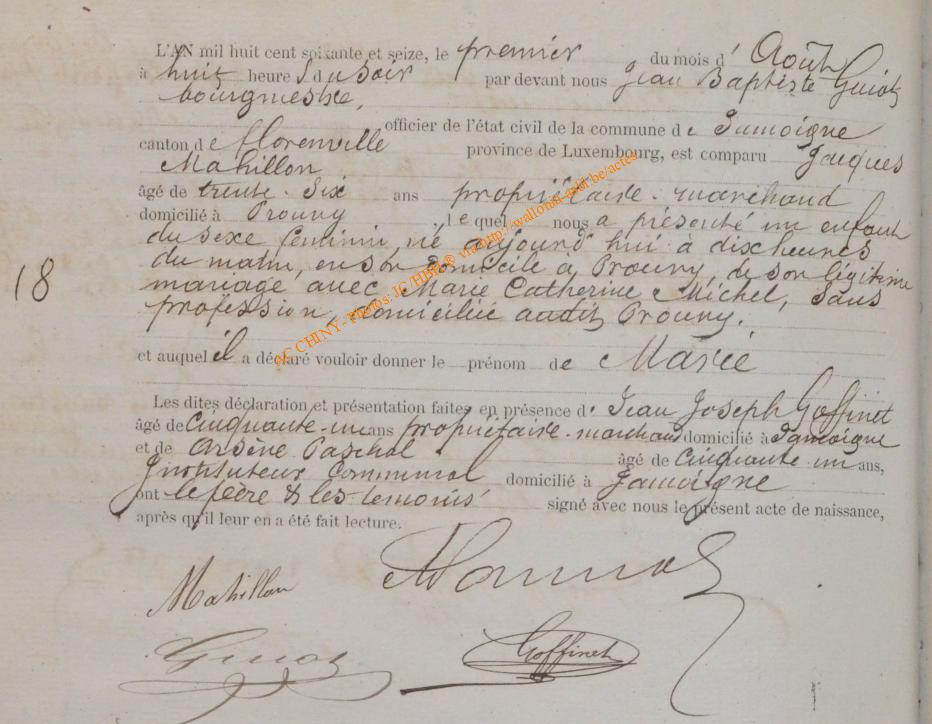 L'AN mil huit cent soixante et seize, le premier du mois d' Août
à huit heures du soir par devant nous Jean Baptiste Guiot
bourgmestre,
officier de l'état civil de la commune de Jamoigne
canton de florenville province de Luxembourg, est comparu Jacques
Mahillon
âgé de trente-six ans propriétaire-marchand
domicilié à Prouvy, lequel nous a présenté un enfant
du sexe féminin, né aujourd'hui à dix heures
du matin, en son domicile à Prouvy, de son légitime
18
mariage avec Marie Catherine Michel, sans
profession, domiciliée audit Prouvy.
et auquel il a déclaré vouloir donner le prénom de Marie
Les dites déclaration et présentation faites en présence de Jean Joseph Goffinet
âgé de cinquante-un ans propriétaire-marchand domicilié à Jamoigne
et de Arsène Paschal âgé de cinquante-un ans,
Instituteur Communal domicilié à Jamoigne
ont le père & les témoins signé avec nous le présent acte de naissance,
après qu'il leur en a été fait lecture.
Mahillon
Guiot Goffinet
AC CHINY - Photos: JC HBR® via http://wallonia-asbl.be/actes